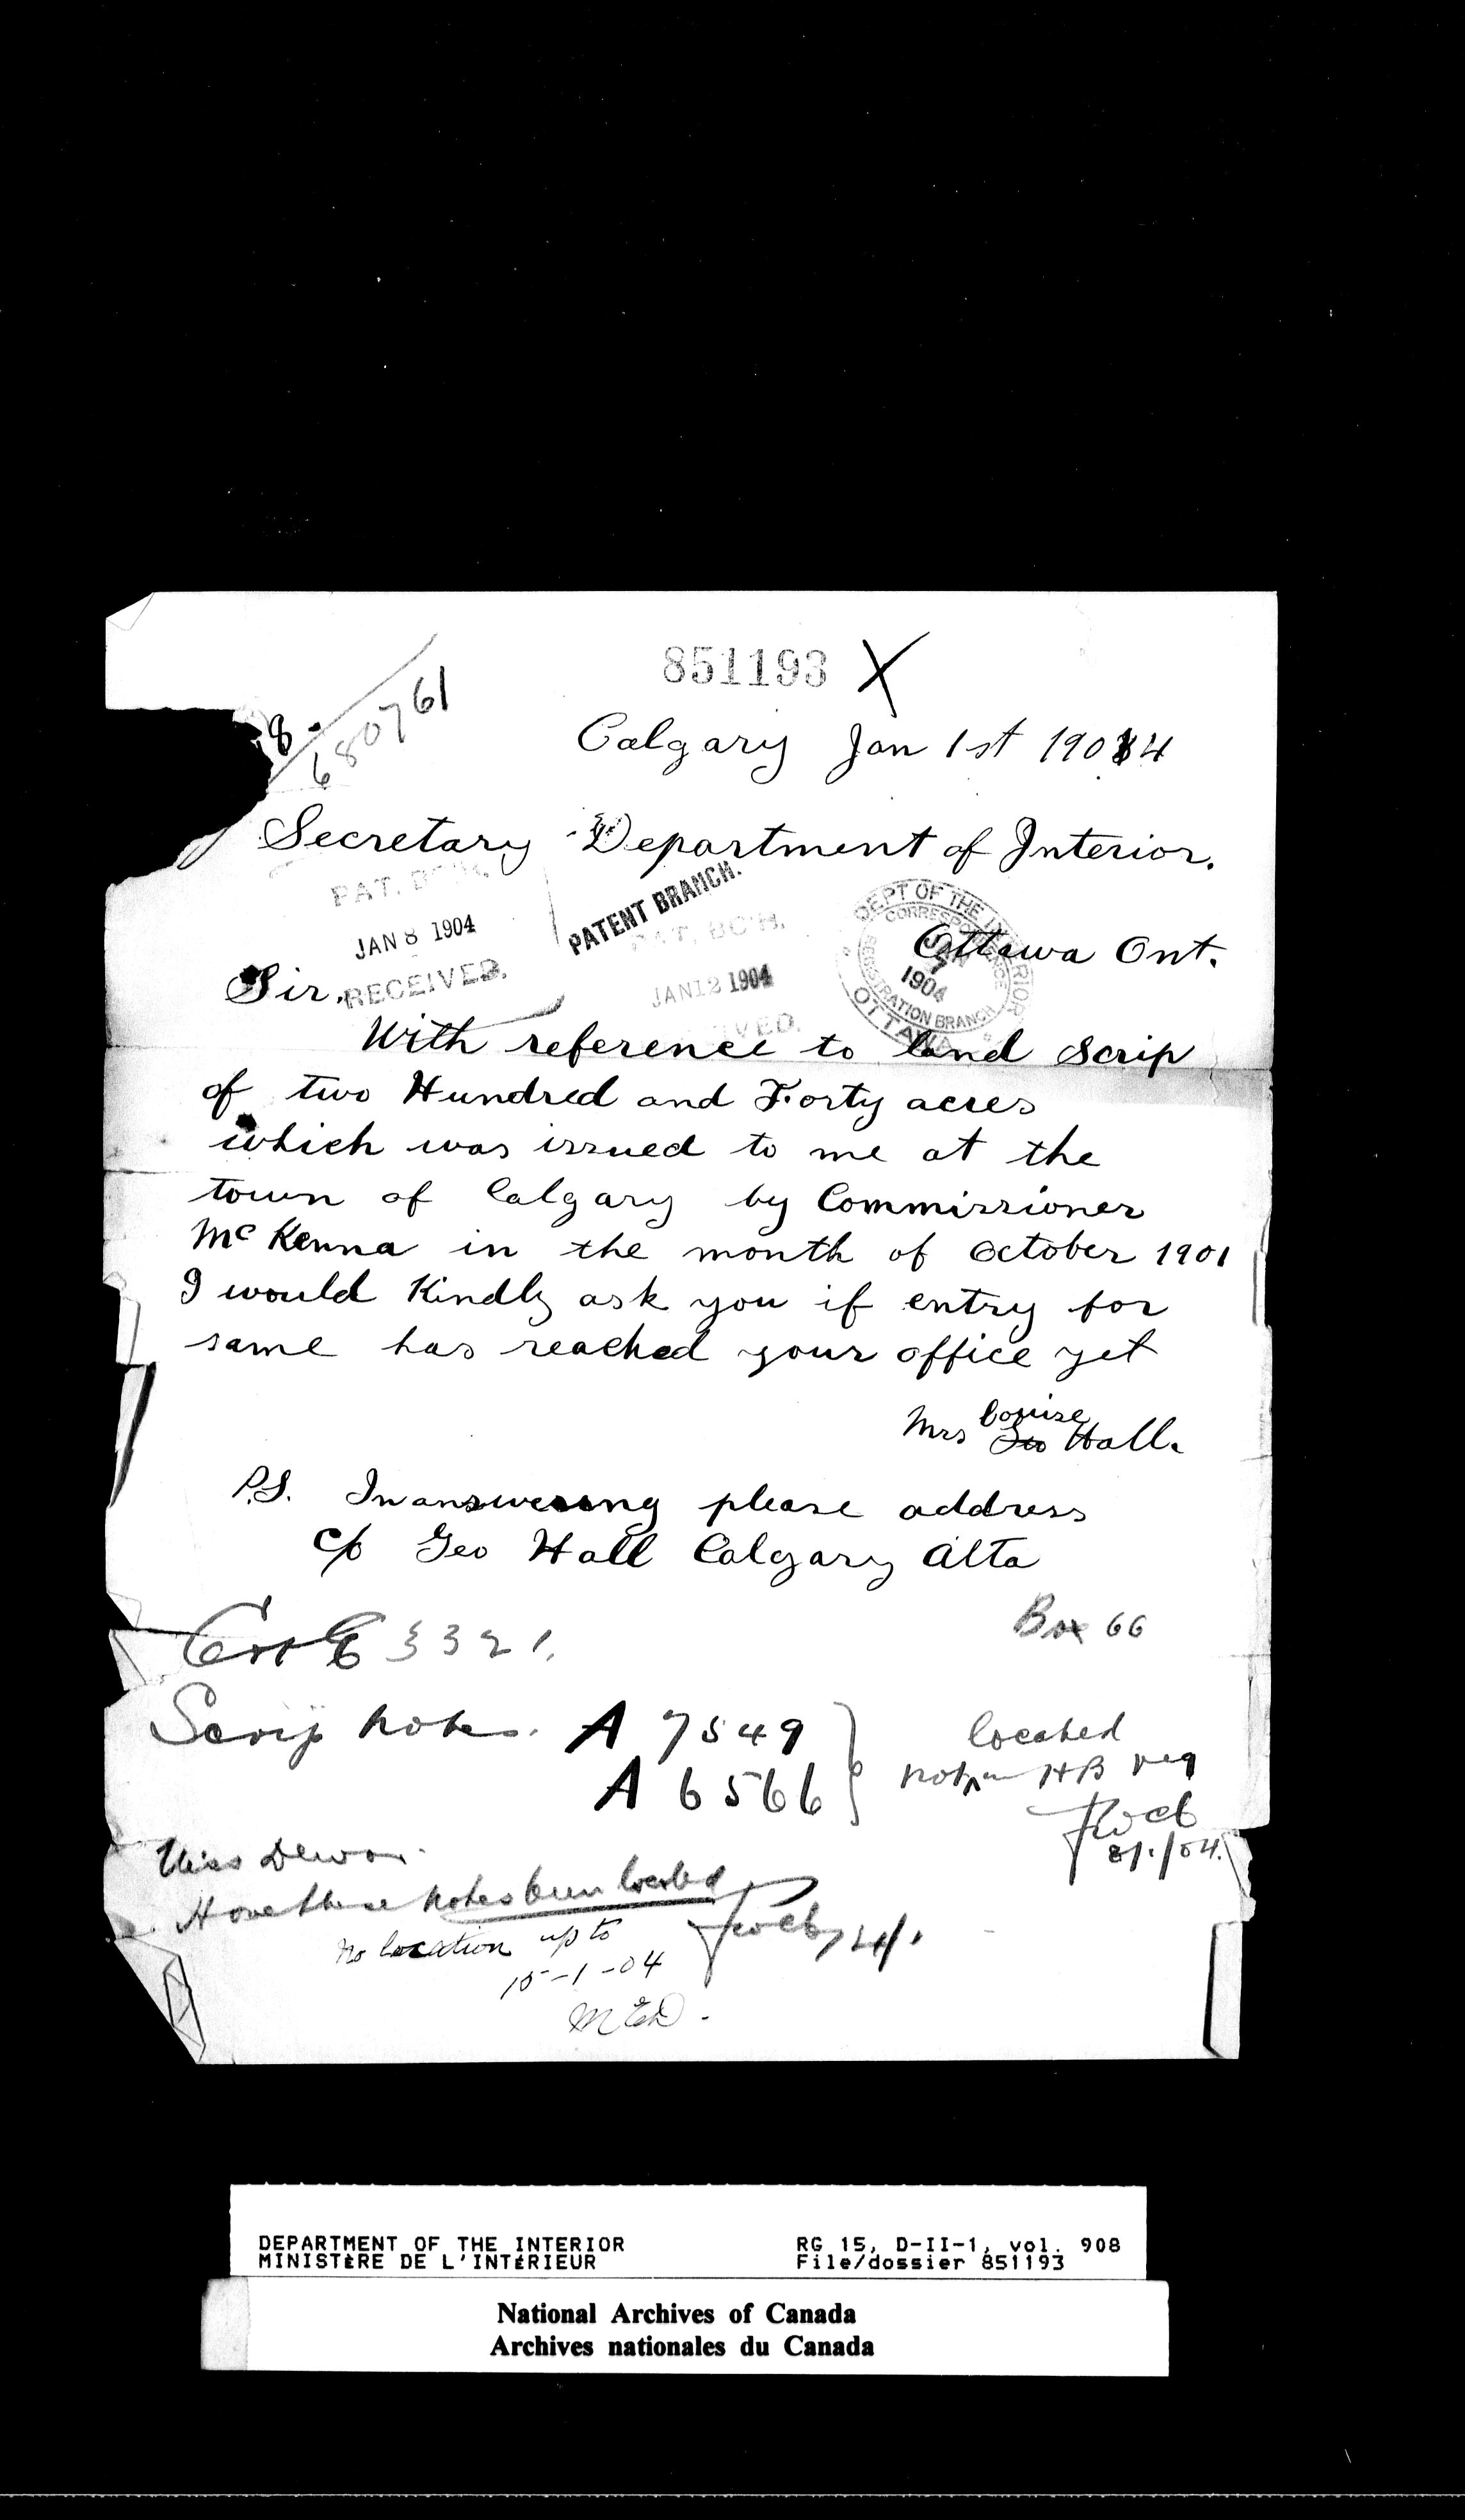 851193 X
8.
680761
Calgary Jan 1st 1904
Secretary Department of Interior.
PAT. BCH.
JAN 8 1904
RECEIVED.
PATENT BRANCH.
PAT. BCH.
JAN 12 1904
DEPT OF THE INTERIOR
CORRESPONDENCE
JAN 7 1904
REGISTRATION BRANCH
OTTAWA
Ottawa Ont.
Sir.
With reference to land Scrip
of two Hundred and Forty acres
which was issued to me at the
town of Calgary by Commissioner
McKenna in the month of October 1901
I would Kindly ask you if entry for
same has reached your office yet
Mrs Louise Geo Hall.
P.S. In answering please address
c/o Geo Hall Calgary Alta
Box 66
Cert E 3321.
Scrip notes. A 7549
A 6566
located
not in HB reg
8/1/04.
Miss Dewar.
Have these notes been located
No location up to
15-1-04
MED.
DEPARTMENT OF THE INTERIOR RG 15, D-II-1, vol. 908
MINISTÈRE DE L'INTÉRIEUR File/dossier 851193
National Archives of Canada
Archives nationales du Canada